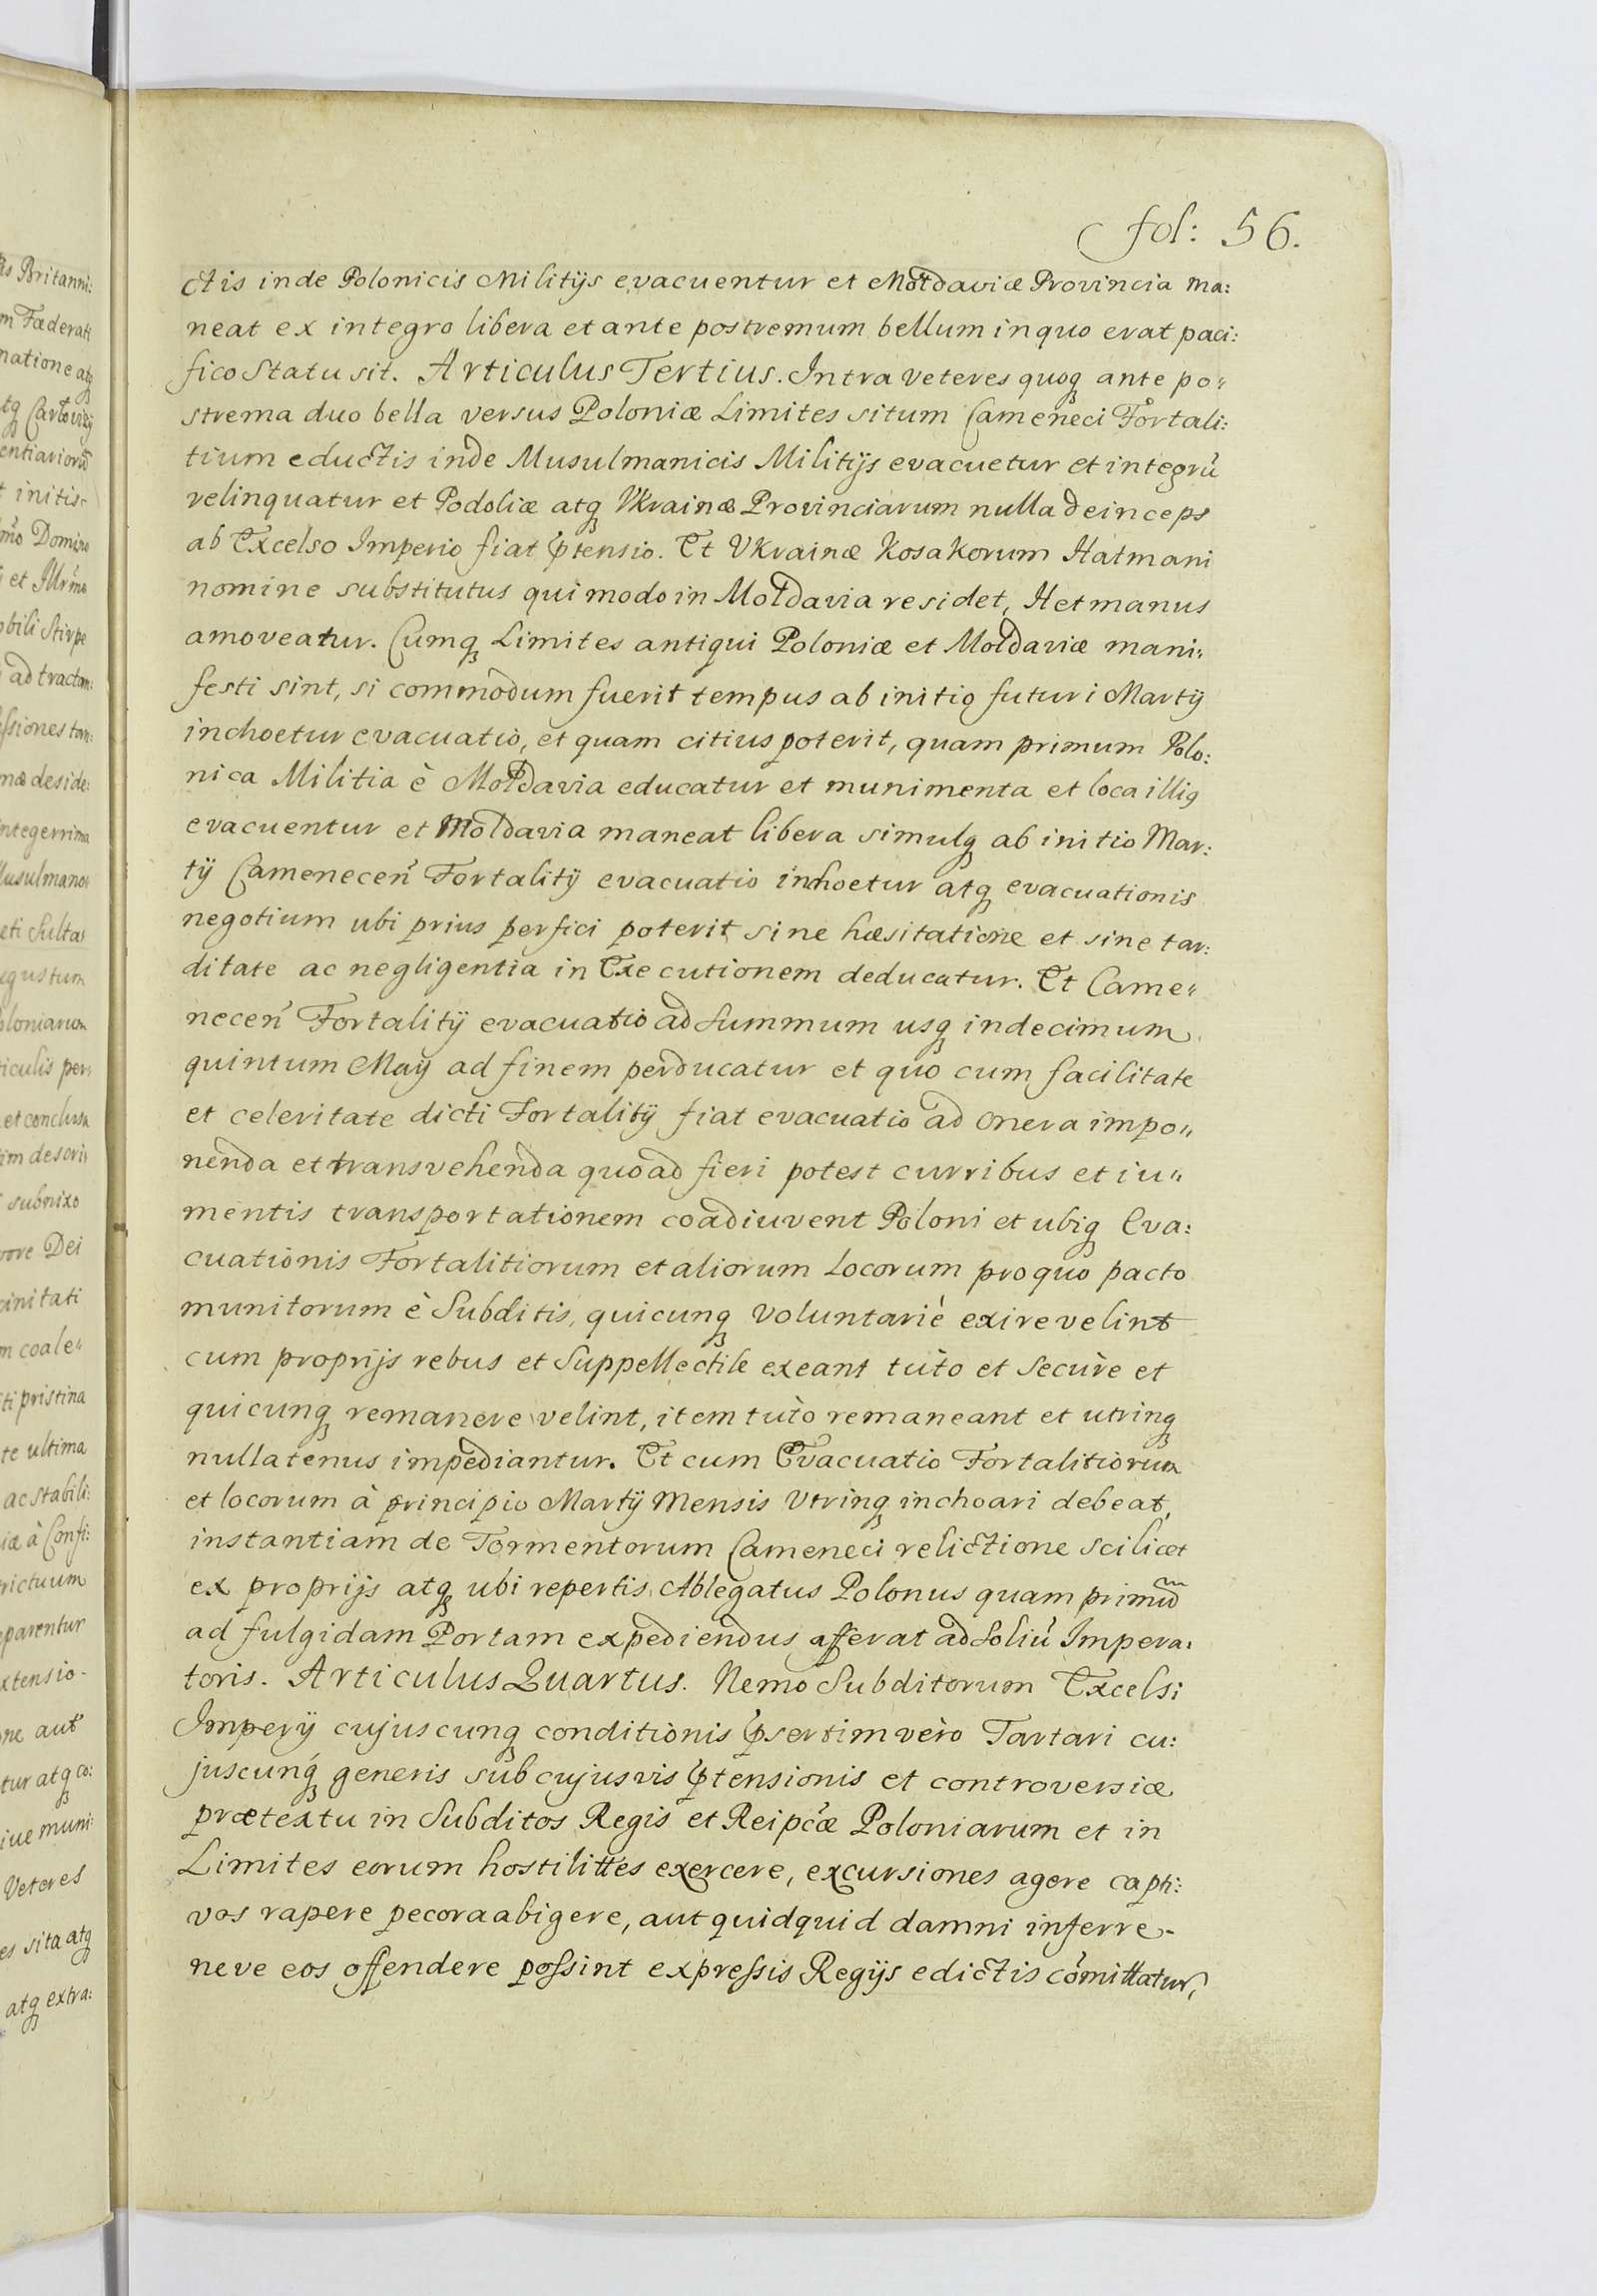 fol: 56.
ctis inde Polonicis Militijs evacuentur et Moldaviæ Provincia ma:
neat ex integro libera et ante postremum bellum in quo erat paci:
fico Statu sit. Articulus Tertius. Intra veteres quoq̨ ante po„
strema duo bella versus Poloniæ Limites situm Cameneci Fortali:
tium eductis inde Musulmanicis Militijs evacuetur et integrũ
relinquatur et Podoliæ atq̨ Vkrainæ Provinciarum nulla deinceps
ab Excelso Imperio fiat p̃tensio. Et Vkrainæ Kosakorum Hatmani
nomine substitutus qui modo in Moldavia residet, Hetmanus
amoveatur. Cumq̨ Limites antiqui Poloniæ et Moldaviæ mani„
festi sint, si commodum fuerit tempus ab initio futuri Martij
inchoetur evacuatio, et quam citius poterit, quam primum Polo:
nica Militia è Moldavia educatur et munimenta et loca illiq
evacuentur et Moldavia maneat libera simulq̨ ab initio Mar:
tij Camenecen̄ Fortalitij evacuatio inchoetur atq̨ evacuationis
negotium ubi prius perfici poterit sine hæsitatione et sine tar:
ditate ac negligentia in Executionem deducatur. Et Came„
necen̄ Fortalitij evacuatio ad summum usq̨ in decimum
quintum Maij ad finem perducatur et quo cum facilitate
et celeritate dicti Fortalitij fiat evacuatio ad onera impo„
nenda et transvehenda quoad fieri potest curribus et iu„
mentis transportationem coadiuvent Poloni et ubiq̨ Eva:
cuationis Fortalitiorum et aliorum Locorum pro quo pacto
munitorum è Subditis, quicunq̨ voluntariè exire velint
cum proprijs rebus et Suppellectile exeant tutò et Secùre et
quicunq̨ remanere velint, item tutò remaneant et utrinq̨
nullatenus impediantur. Et cum Evacuatio Fortalitiorum
et locorum à principio Martij Mensis Vtrinq̨ inchoari debeat,
instantiam de Tormentorum Cameneci relictione scilicet
ex proprijs atq̨ ubi repertis Ablegatus Polonus quam primum
ad fulgidam Portam expediendus afferat ad Soliũ Impera:
toris. Articulus Quartus. Nemo Subditorum Excelsi
Imperij cujuscunq̨ conditionis p̃sertim vero Tartari cu:
juscunq̨ generis sub cujusvis p̃tensionis et controversiæ
prætextu in Subditos Regis et Reipc̃æ Poloniarum et in
Limites eorum hostilittes exercere, excursiones agere capti:
vos rapere pecora abigere, aut quidquid damni inferre
neve eos offendere possint expressis Regijs edictis com̄ittatur,